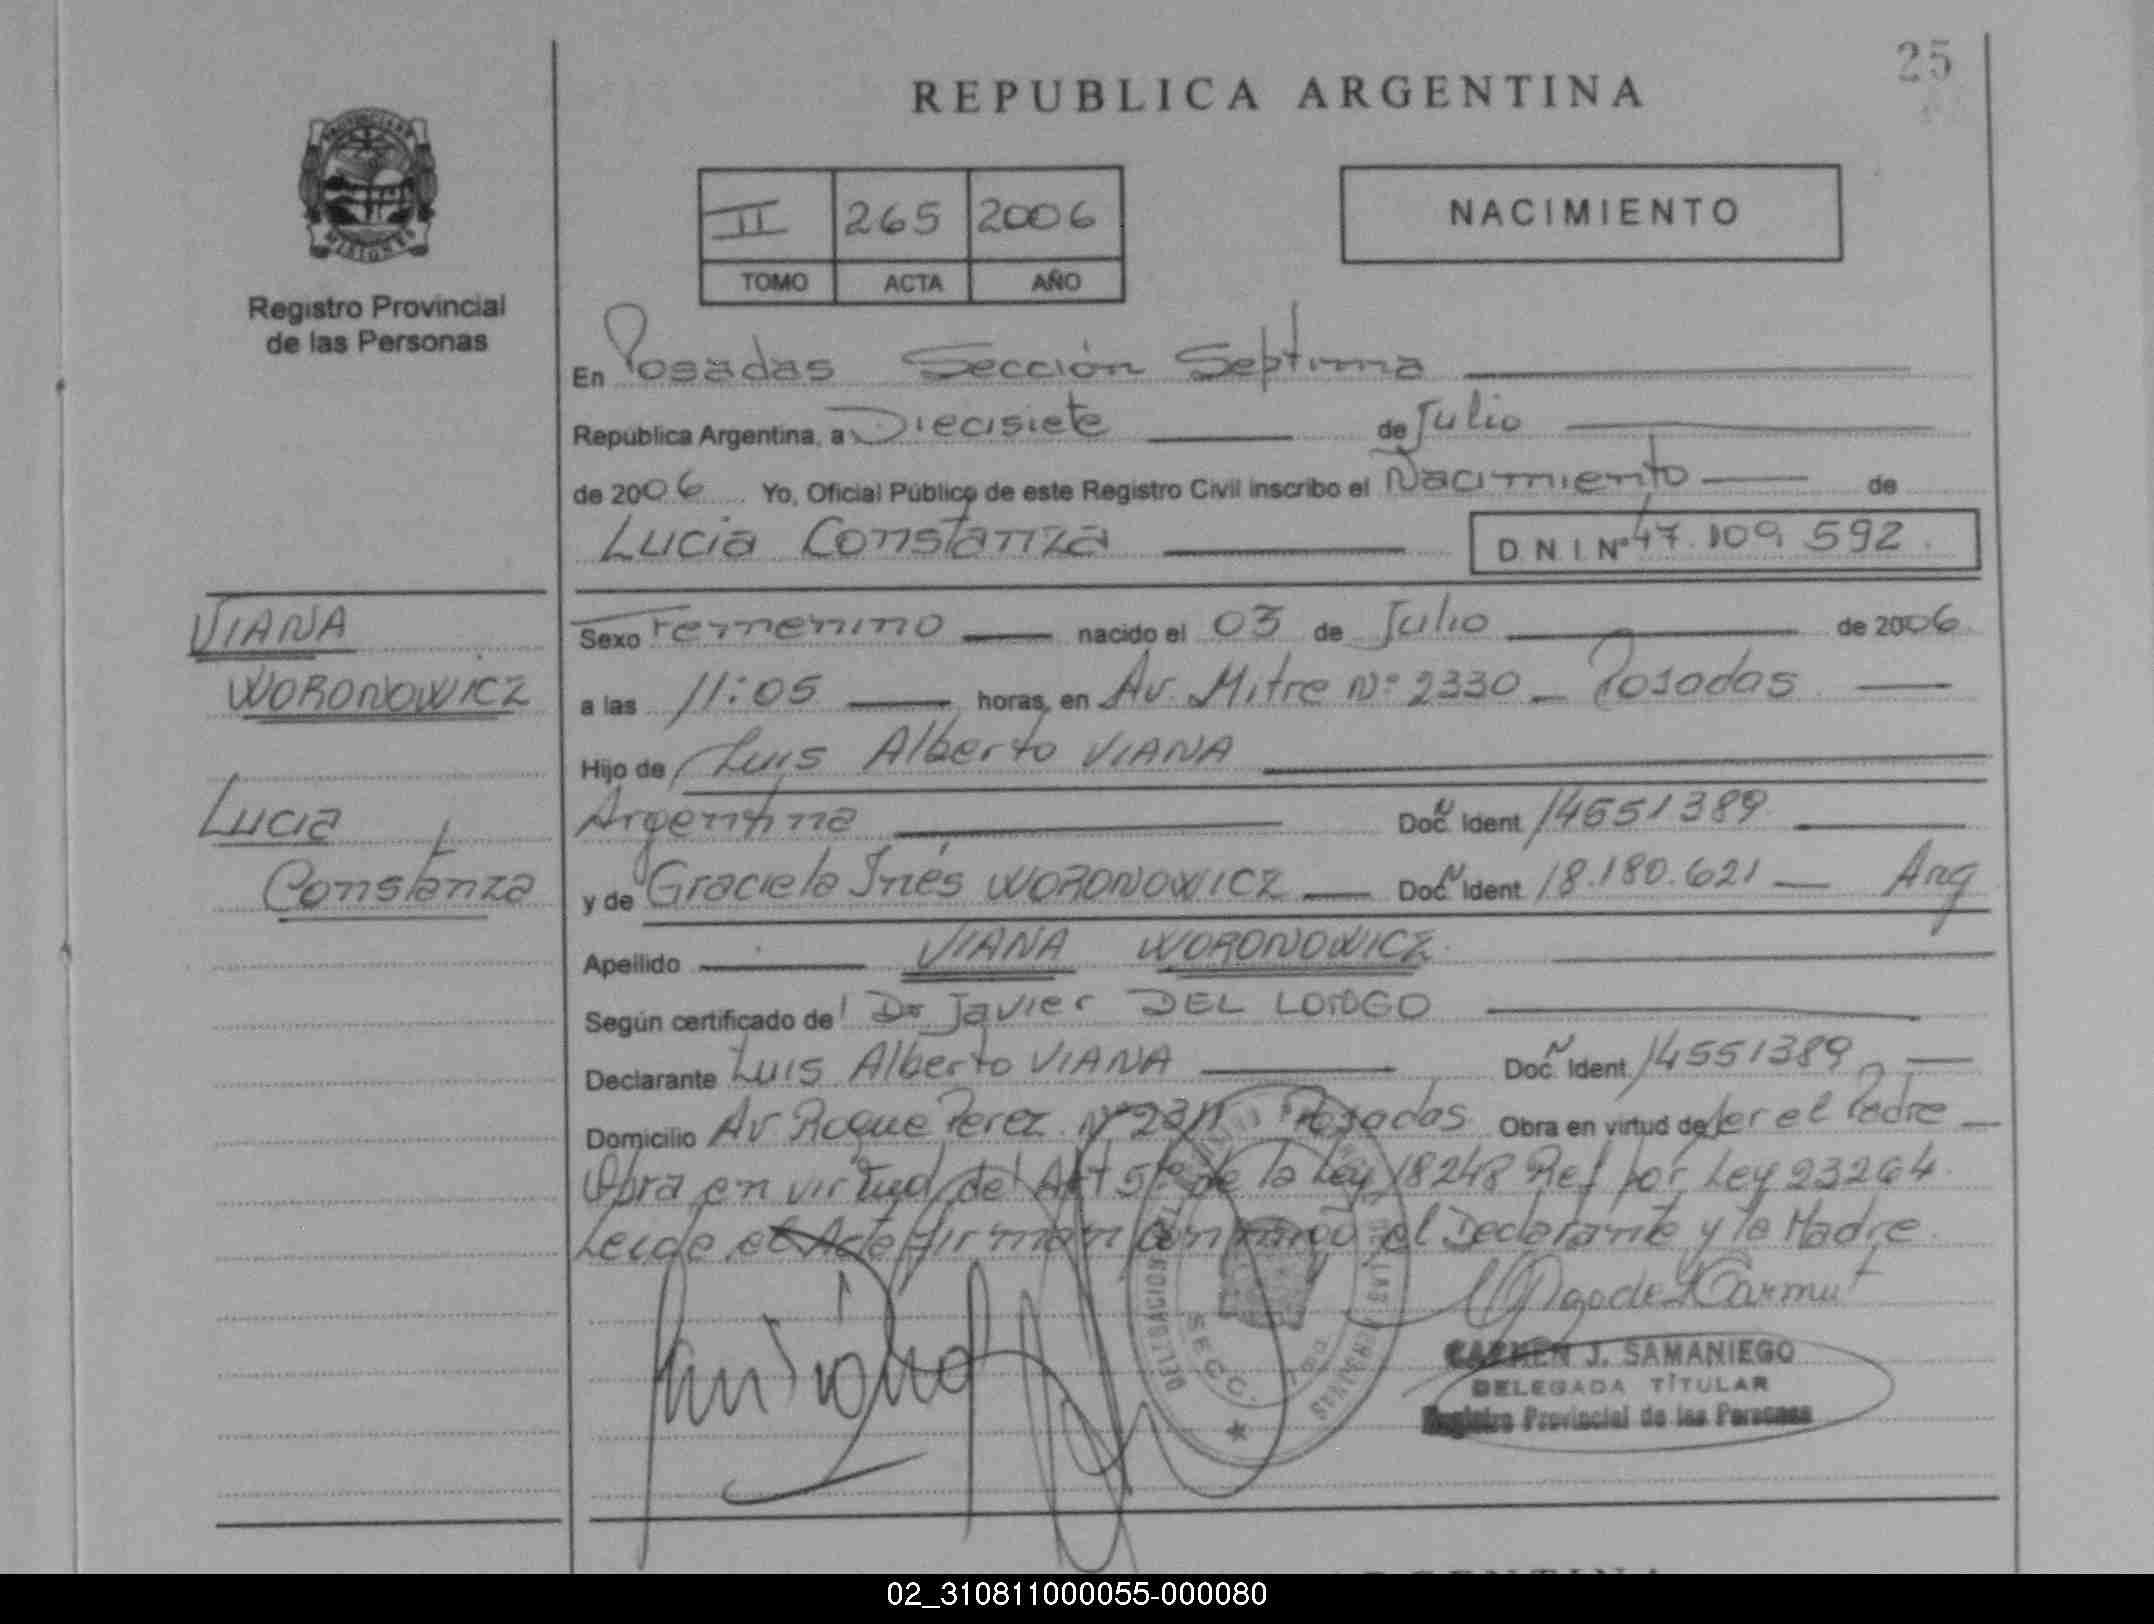 25
REPUBLICA ARGENTINA
II 265 2006
TOMO ACTA AÑO
NACIMIENTO
Registro Provincial
de las Personas
En Posadas Sección Septima
República Argentina, a Diecisiete de Julio
de 2006 Yo, Oficial Público de este Registro Civil inscribo el Nacimiento de
Lucia Constanza D.N.I. Nº 47.109.592
VIANA
WORONOWICZ
Lucia
Constanza
Sexo Femenino nacido el 03 de Julio de 2006
a las 11:05 horas, en Av. Mitre Nº 2330 - Posadas
Hijo de Luis Alberto VIANA
Argentina Doc. Ident. 14551389
y de Graciela Inés WORONOWICZ Doc. Ident. 18.180.621 - Arg
Apellido VIANA WORONOWICZ
Según certificado del Dr Javier DEL
Declarante Luis Alberto VIANA Doc. Ident. 14551389
Domicilio Av Roque Perez Nº Posadas Obra en virtud de ser el Padre
Obra en virtud del Art 5to de la Ley 18248 Ref por Ley 23264
Leida el Acta firman conmigo el Declarante y la Madre.
DELEGACION
SECC.
CARMEN J. SAMANIEGO
DELEGADA TITULAR
Registro Provincial de las Personas
ARGENTINA
02_310811000055-000080